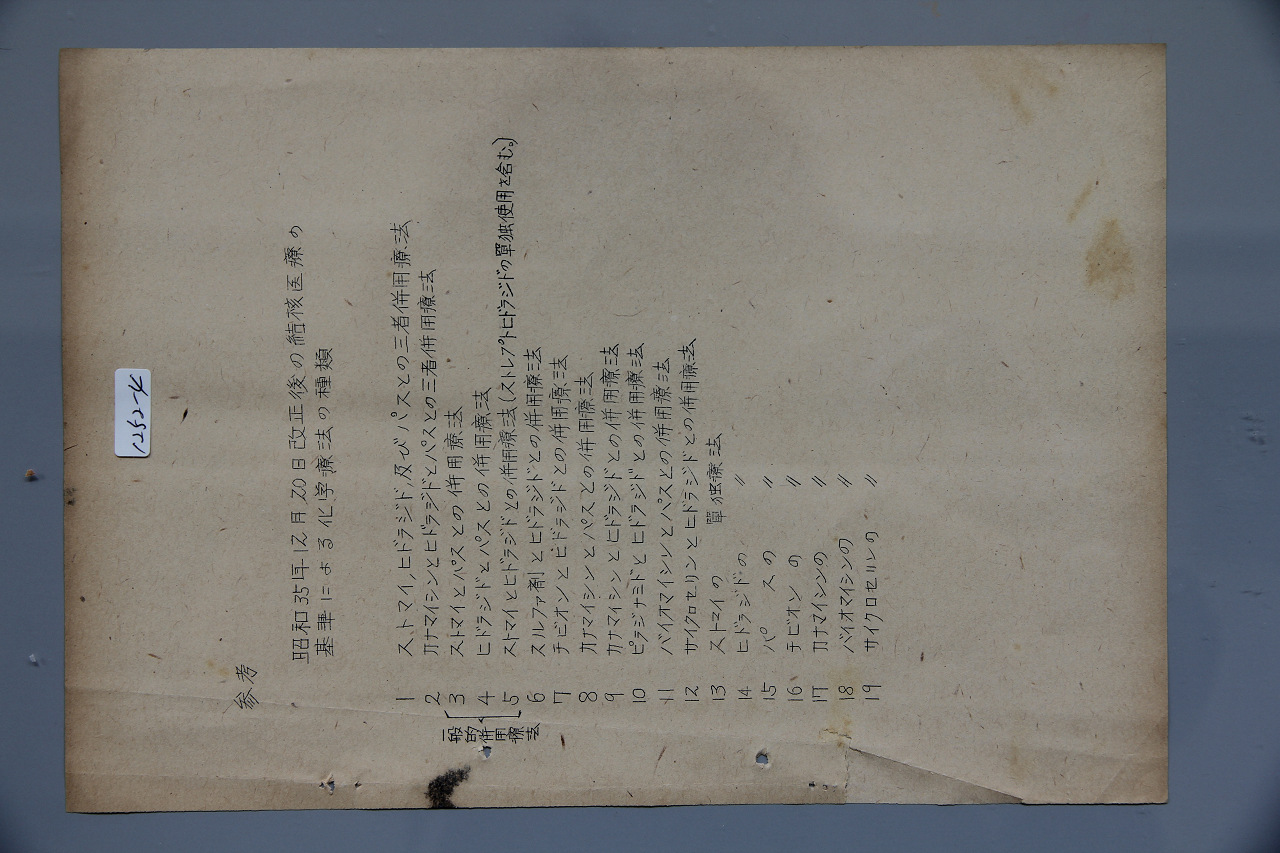 1252-4
参考
昭和35年12月20日改正後の結核医療の
基準による化学療法の種類
1 ストマイ,ヒドラジド,及びパスとの三者併用療法
2 カナマイシンとヒドラジドとパスとの三者併用療法
3 ストマイとパスとの併用療法
4 ヒドラジドとパスとの併用療法
5 ストマイとヒドラジドとの併用療法(ストレプトヒドラジドの單独使用を含む。)
一般的併用療法
6 スルファ剤とヒドラジドとの併用療法
7 チビオンとヒドラジドとの併用療法
8 カナマイシンとパスとの併用療法
9 カナマイシンとヒドラジドとの併用療法
10 ピラジナミドとヒドラジドとの併用療法
11 バイオマイシンとパスとの併用療法
12 サイクロセリンとヒドラジドとの併用療法
13 ストマイの 單独療法
14 ヒドラジドの 〃
15 パスの 〃
16 チビオンの 〃
17 カナマイシンの 〃
18 バイオマイシンの 〃
19 サイクロセリンの 〃